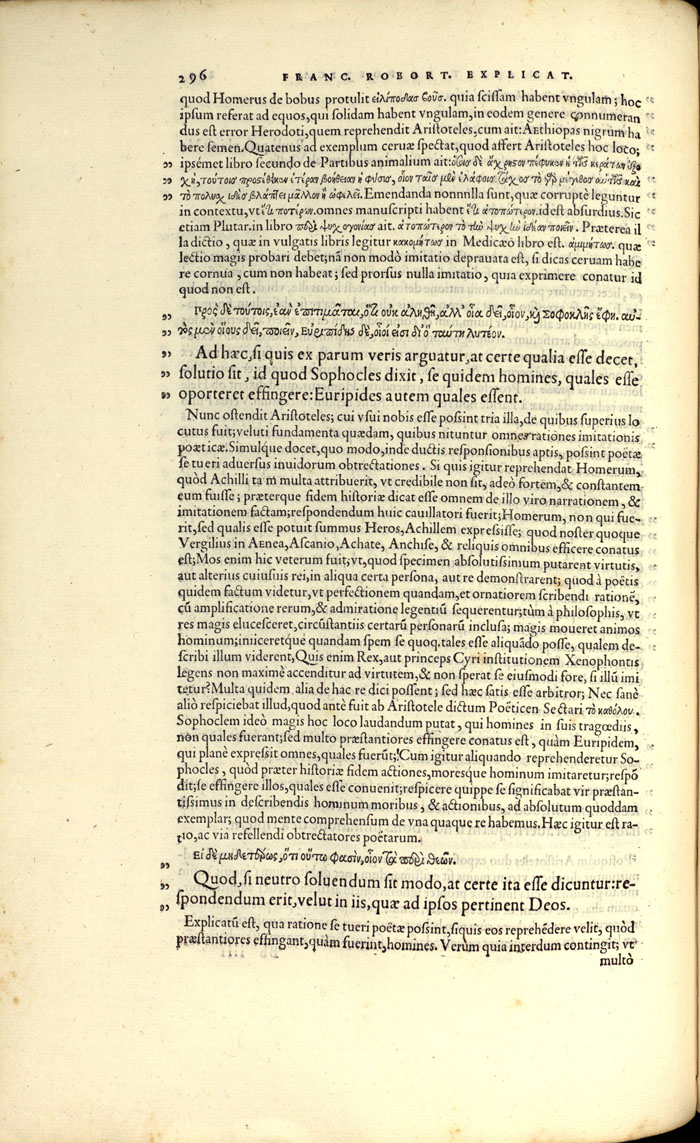 296 FRANC. ROBORT. EXPLICAT.
quod Homerus de bobus protulit εἰλίποδας βοῦς. quia scissam habent vngulam; hoc
ipsum referat ad equos, qui solidam habent vngulam, in eodem genere connumeran
dus est error Herodoti, quem reprehendit Aristoteles, cum ait: Aethiopas nigrum ha
bere semen. Quatenus ad exemplum ceruæ spectat, quod affert Aristoteles hoc loco;
ipsémet libro secundo de Partibus animalium ait: δὲ ἄχρηστον πέφυκεν ἡ τῶν κεράτων
τούτοις προστέθεικεν ἑτέραν βοήθειαν ἡ φύσις, οἷον ταῖς μὲν ἐλάφοις τάχος τὸ γὰρ μέγεθος αὐτῶν καὶ
τὸ πολυχιδὲς βλάπτει μᾶλλον ἢ ὠφελεῖ. Emendanda nonnnlla sunt, quæ corruptè leguntur
in contextu, vt πότερον. omnes manuscripti habent ἀτοπώτερον. id est absurdius. Sic
etiam Plutar. in libro περὶ ψυχογονίας ait. ἀτοπώτερον τὸ τὴν ἰδίαν ποιεῖν. Præterea il
la dictio, quæ in vulgatis libris legitur κακομήτως in Medicæo libro est. ἀμιμήτως. quæ
lectio magis probari debet; nã non modò imitatio deprauata est, si dicas ceruam habe
re cornua, cum non habeat; sed prorsus nulla imitatio, quia exprimere conatur id
quod non est.
Πρὸς δὲ τούτοις, ἐὰν ἐπιτιμᾶται, ὅτι οὐκ ἀληθῆ, ἀλλ' οἷα δεῖ, οἷον, καὶ Σοφοκλῆς ἔφη. αὐ-
τὸς μὲν οἵους δεῖ, ποιεῖν, Εὐριπίδης δὲ, οἷοί εἰσι διὸ ταύτῃ λυτέον.
Ad hæc, si quis ex parum veris arguatur, at certe qualia esse decet,
solutio sit, id quod Sophocles dixit, se quidem homines, quales esse
oporteret effingere: Euripides autem quales essent.
Nunc ostendit Aristoteles; cui vsui nobis esse possint tria illa, de quibus superius lo
cutus fuit; veluti fundamenta quædam, quibus nituntur omnes rationes imitationis
poæticæ. Simulque docet, quo modo, inde ductis responsionibus aptis, possint poëtæ
se tueri aduersus inuidorum obtrectationes. Si quis igitur reprehendat Homerum,
quòd Achilli tam multa attribuerit, vt credibile non sit, adeò fortem, & constantem
eum fuisse; præterque fidem historiæ dicat esse omnem de illo viro narrationem, &
imitationem factam; respondendum huic cauillatori fuerit; Homerum, non qui fue-
rit, sed qualis esse potuit summus Heros, Achillem expressisse; quod noster quoque
Vergilius in AEnea, Ascanio, Achate, Anchise, & reliquis omnibus efficere conatus
est; Mos enim hic veterum fuit; vt, quod specimen absolutissimum putarent virtutis,
aut alterius cuiusuis rei, in aliqua certa persona, aut re demonstrarent; quod à poëtis
quidem factum videtur, vt perfectionem quandam, et ornatiorem scribendi rationẽ,
cũ amplificatione rerum, & admiratione legentiũ sequerentur; tùm à philosophis, vt
res magis elucesceret, circũstantiis certarũ personarũ inclusa; magis moueret animos
hominum; iniiceretq́ue quandam spem se quoq. tales esse aliquãdo posse, qualem de-
scribi illum viderent, Quis enim Rex, aut princeps Cyri institutionem Xenophontis
legens non maximè accenditur ad virtutem, & non sperat se eiusmodi fore, si illũ imi
tetur? Multa quidem alia de hac re dici possent; sed hæc satis esse arbitror; Nec sanè
aliò respiciebat illud, quod antè fuit ab Aristotele dictum Poëticen Sectari τὸ καθόλου.
Sophoclem ideò magis hoc loco laudandum putat, qui homines in suis tragœdiis,
non quales fuerant; sed multo præstantiores effingere conatus est, quàm Euripidem,
qui planè expressit omnes, quales fuerũt; Cum igitur aliquando reprehenderetur So-
phocles, quòd præter historiæ fidem actiones, moresque hominum imitaretur; respõ
dit; se effingere illos, quales esse conuenit; respicere quippe se significabat vir præstan-
tissimus in describendis hominum moribus, & actionibus, ad absolutum quoddam
exemplar; quod mente comprehensum de vna quaque re habemus. Hæc igitur est ra-
tio, ac via refellendi obtrectatores poëtarum.
Εἰ δὲ μηδετέρως, ὅτι οὕτω φασὶν, οἷον τὰ περὶ θεῶν.
Quod, si neutro soluendum sit modo, at certe ita esse dicuntur: re-
spondendum erit, velut in iis, quæ ad ipsos pertinent Deos.
Explicatũ est, qua ratione se tueri poëtæ possint, siquis eos reprehẽdere velit, quòd
præstantiores effingant, quàm fuerint, homines. Verùm quia interdum contingit; vt
multò